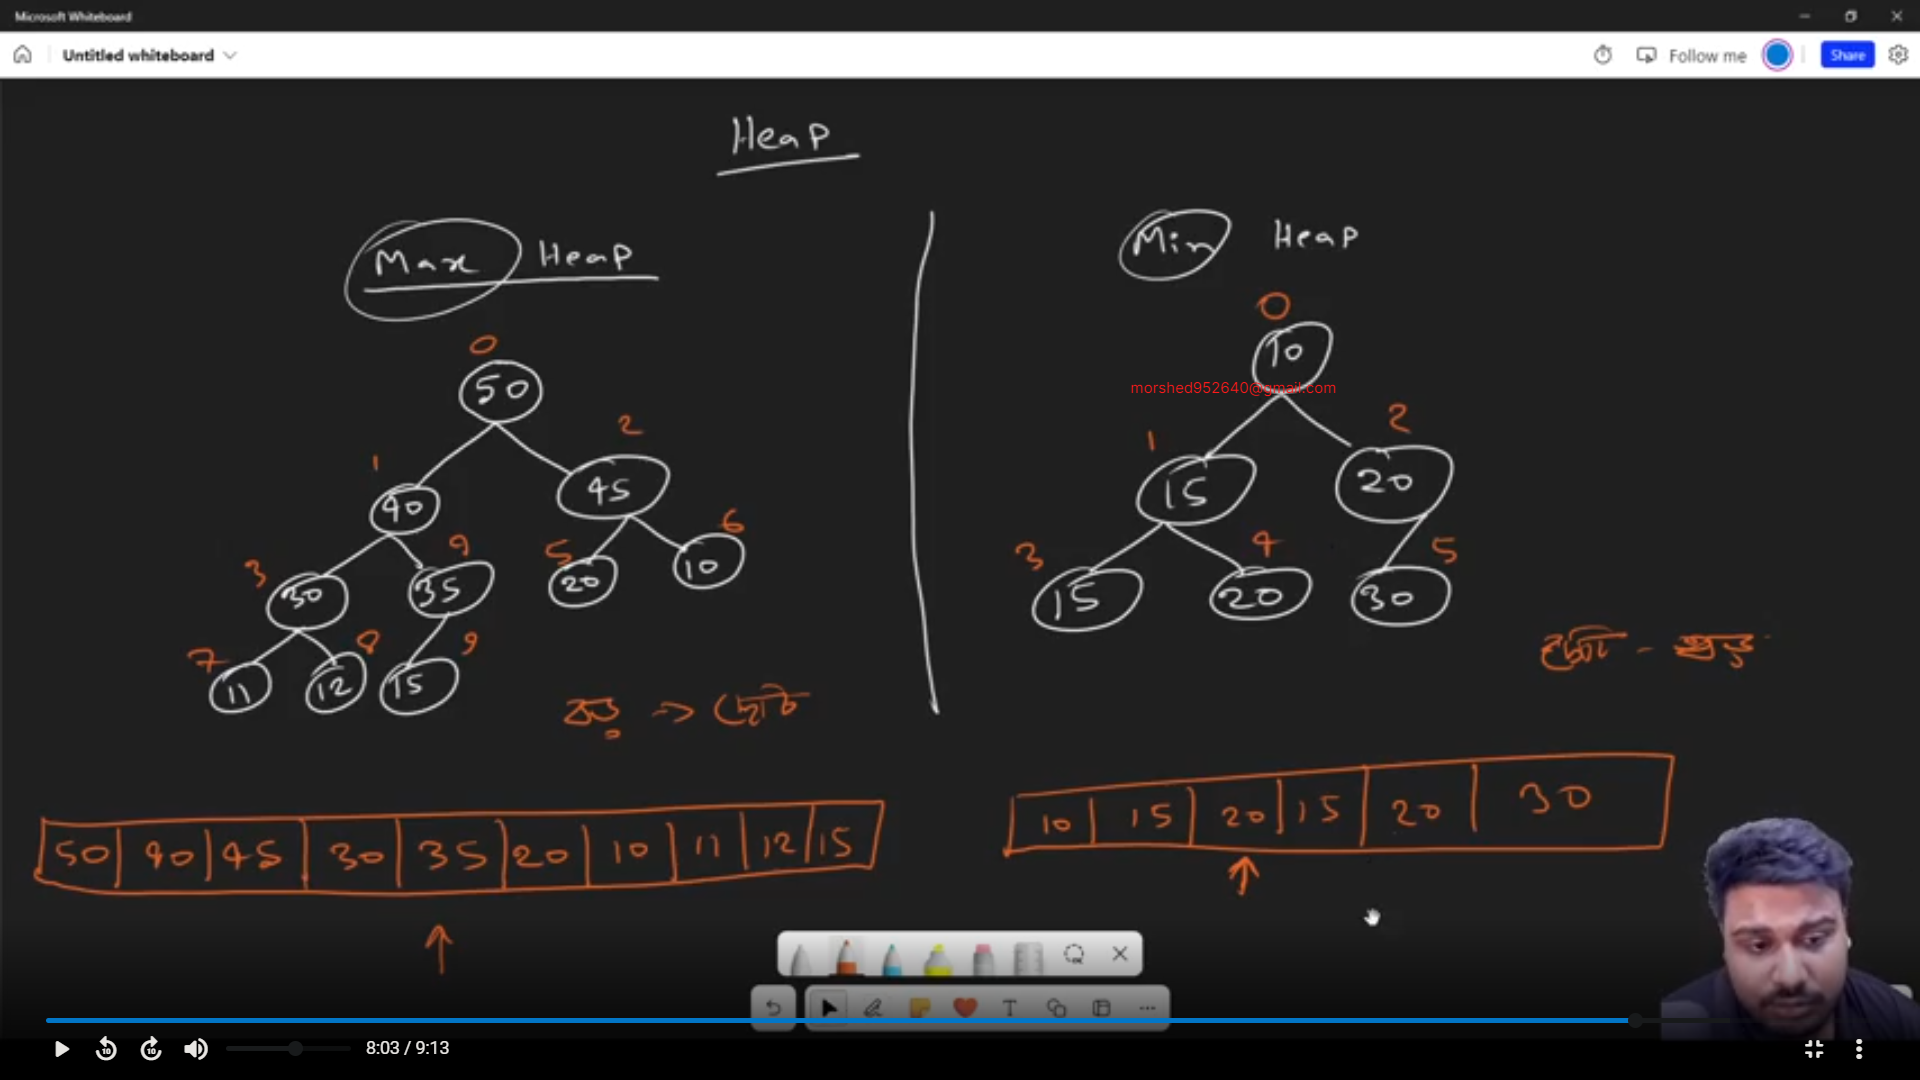 Microsoft Whiteboard
Untitled whiteboard
Follow me
Share
Heap
Max Heap
Min Heap
0
50
1
2
40
45
3
4
5
6
30
35
20
10
7
8
9
11
12
15
বড় -> ছোট
50 40 45 30 35 20 10 11 12 15
0
10
morshed952640@gmail.com
1
2
15
20
3
4
5
15
20
30
ছোট - বড়
10 15 20 15 20 30
8:03 / 9:13